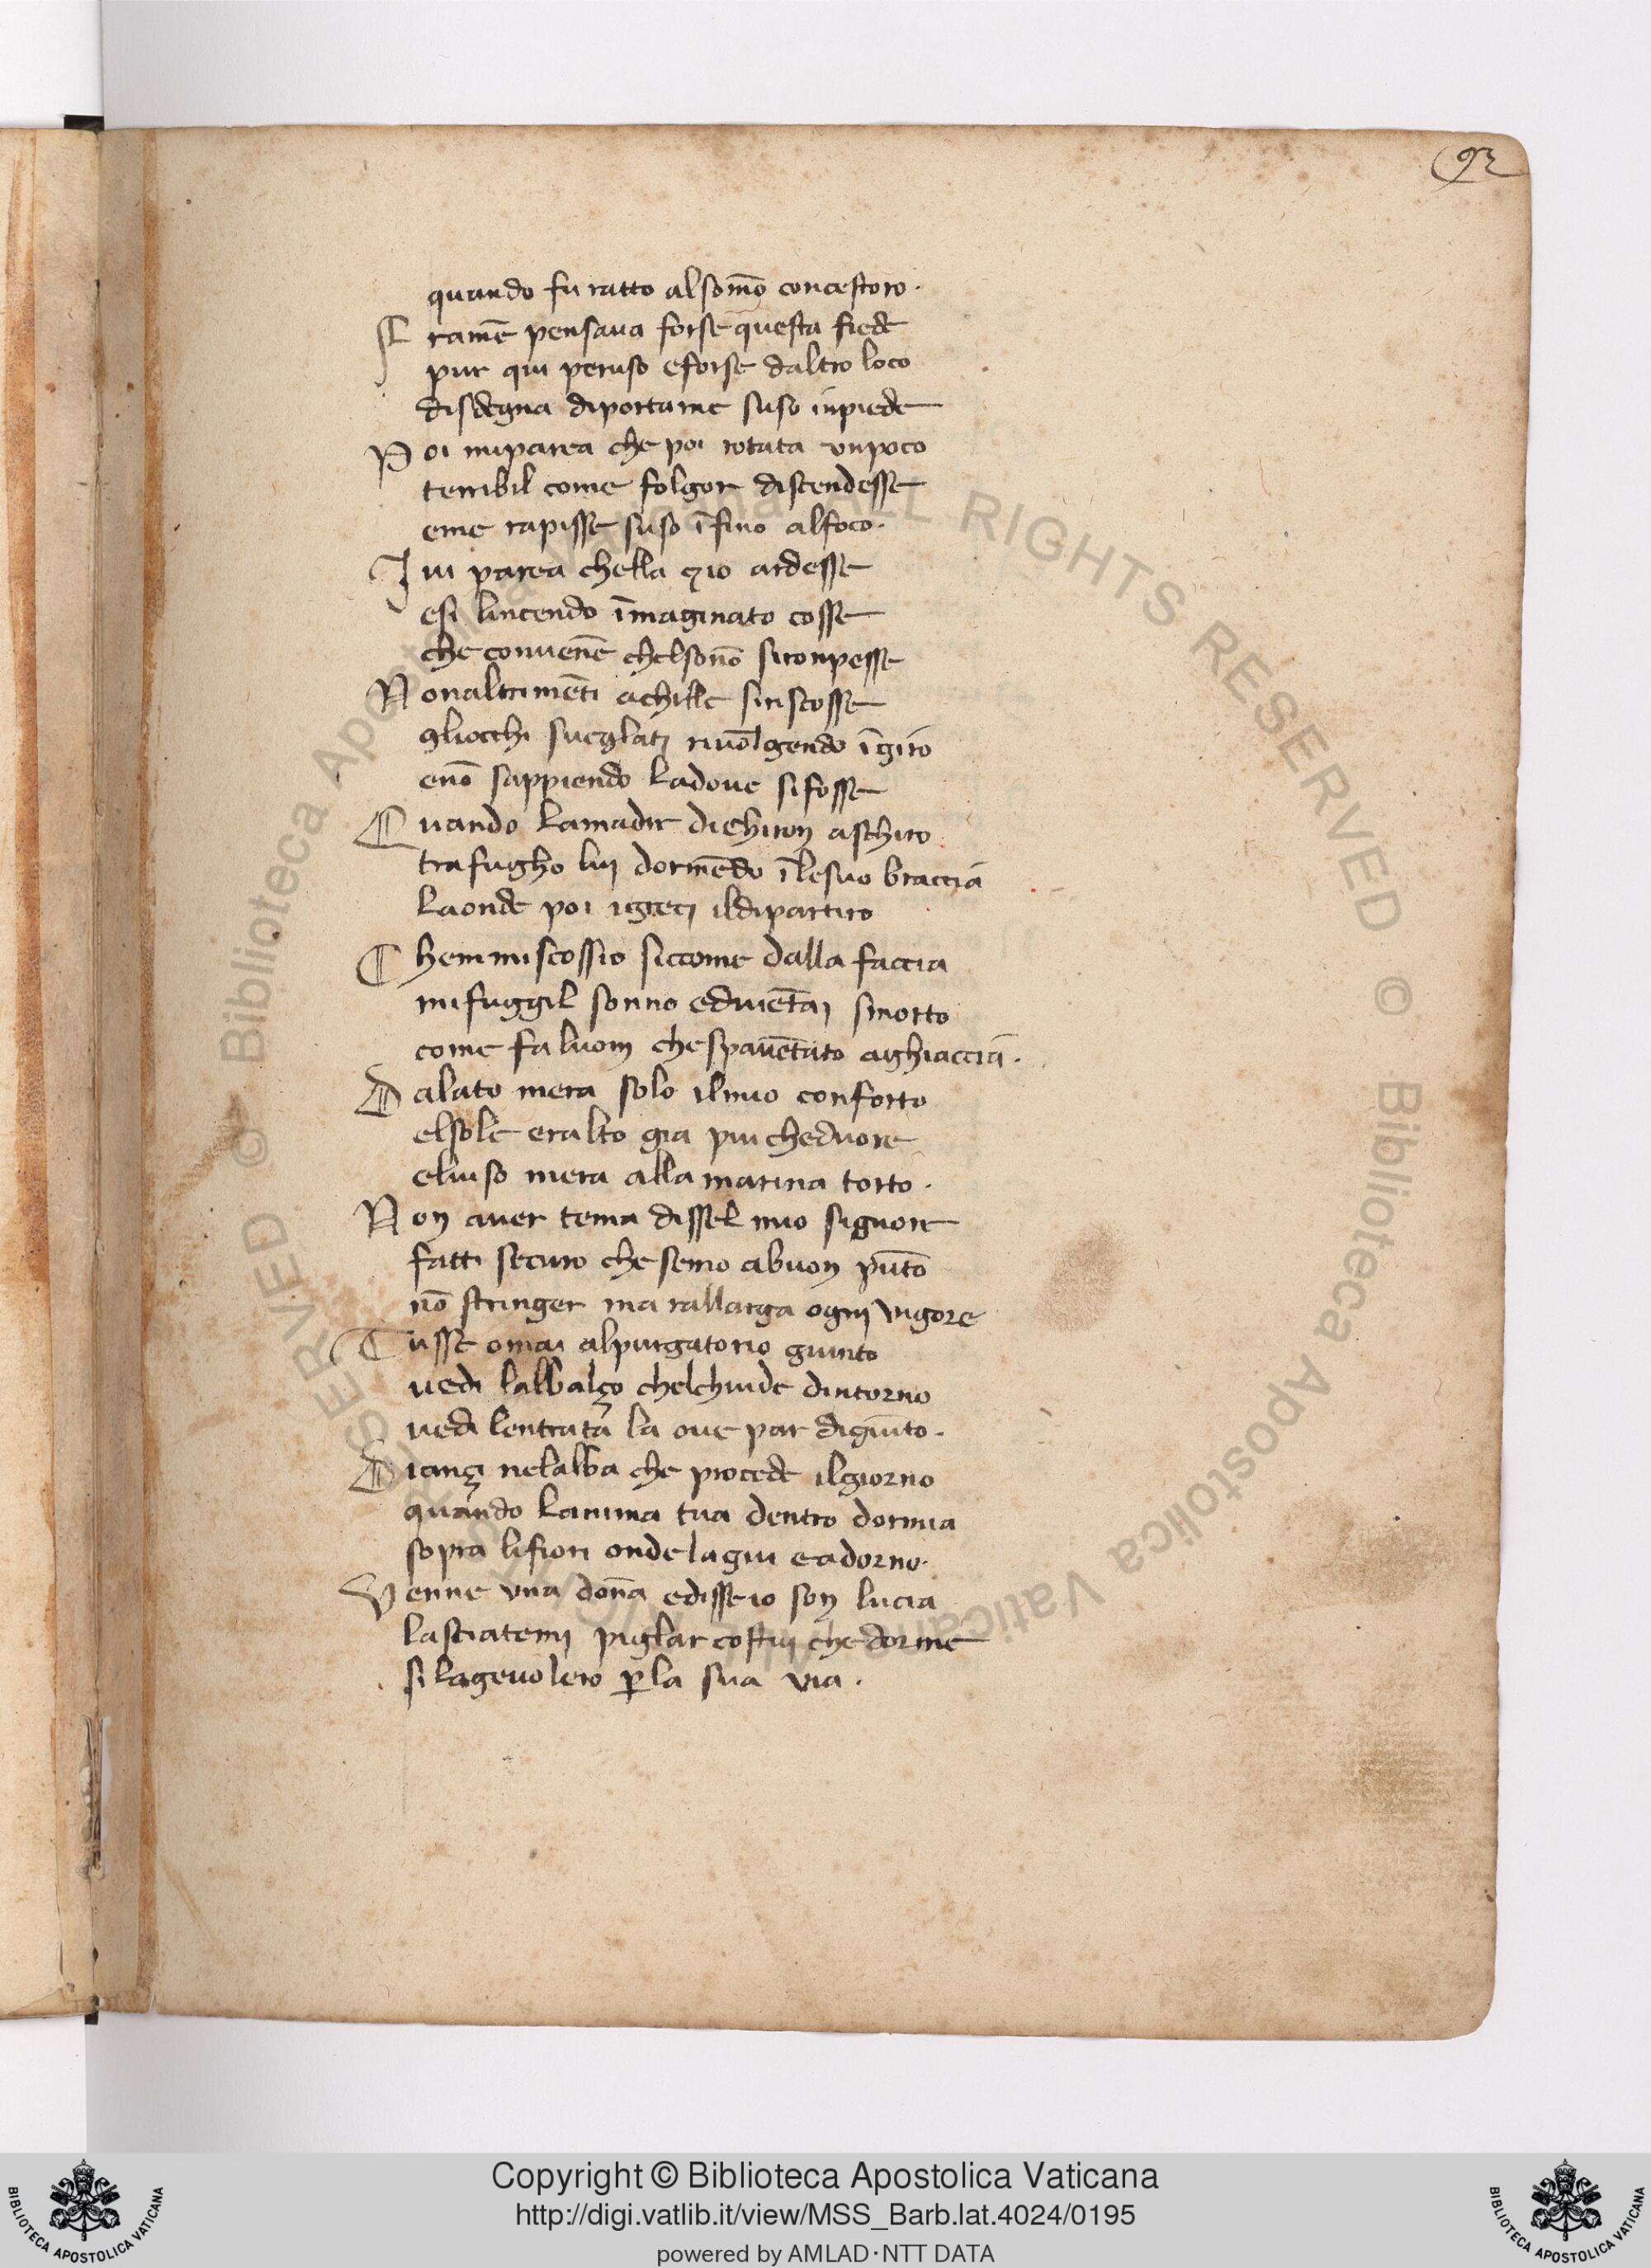 92
quando fu ratto alsom̄o concestoro.
F ramē pensaua forse questa fiede
pur qui peruso eforse daltro loco
disdegna diportarne suso inpiede
P oi miparea che poi rotata vnpoco
terribil come folgor discendesse
eme rapisse suso īfino alfoco.
I ui parea chella ꝫio ardesse
esi lincendo īmaginato cosse
che conuenē chelsonō sironpesse
N onaltrimēti achille siriscosse
gliocchi sueglatj riuōlgendo īgiro
enō sappiendo ladoue sifosse
Q uando lamadre dichiron aschiro
trafugho luj dormēdo īlesuo braccia
laonde poi igrecj ildipartiro
C hemmiscossio siccome dalla faccia
mifuggil sonno ediuētaj smorto
come faluom chespauētato aghiaccia.
D alato mera solo ilmio conforto
elsole eralto gia piu cheduore
eluiso mera alla marina torto.
N on auer tema dissel mio signore
fatti securo che semo abuon pūto
nō stringer ma rallarga ognj vigore
T usse omai alpurgatorio giunto
uedi lalbalço chelchiude dintorno
uedi lentrata la oue par digiūto.
D iançi nelalba che procede ilgiorno
quando lanima tua dentro dormia
sopra lifiori ondelagiu eadorno.
V enne vna dōna edisse io son lucia
lasciatemj piglar costuj che dorme
si lageuolero ꝑla sua via.
© Biblioteca Apostolica Vaticana ALL RIGHTS RESERVED © Biblioteca Apostolica Vaticana ALL RIGHTS RESERVED
Copyright © Biblioteca Apostolica Vaticana
http://digi.vatlib.it/view/MSS_Barb.lat.4024/0195
powered by AMLAD·NTT DATA
BIBLIOTECA APOSTOLICA VATICANA
BIBLIOTECA APOSTOLICA VATICANA